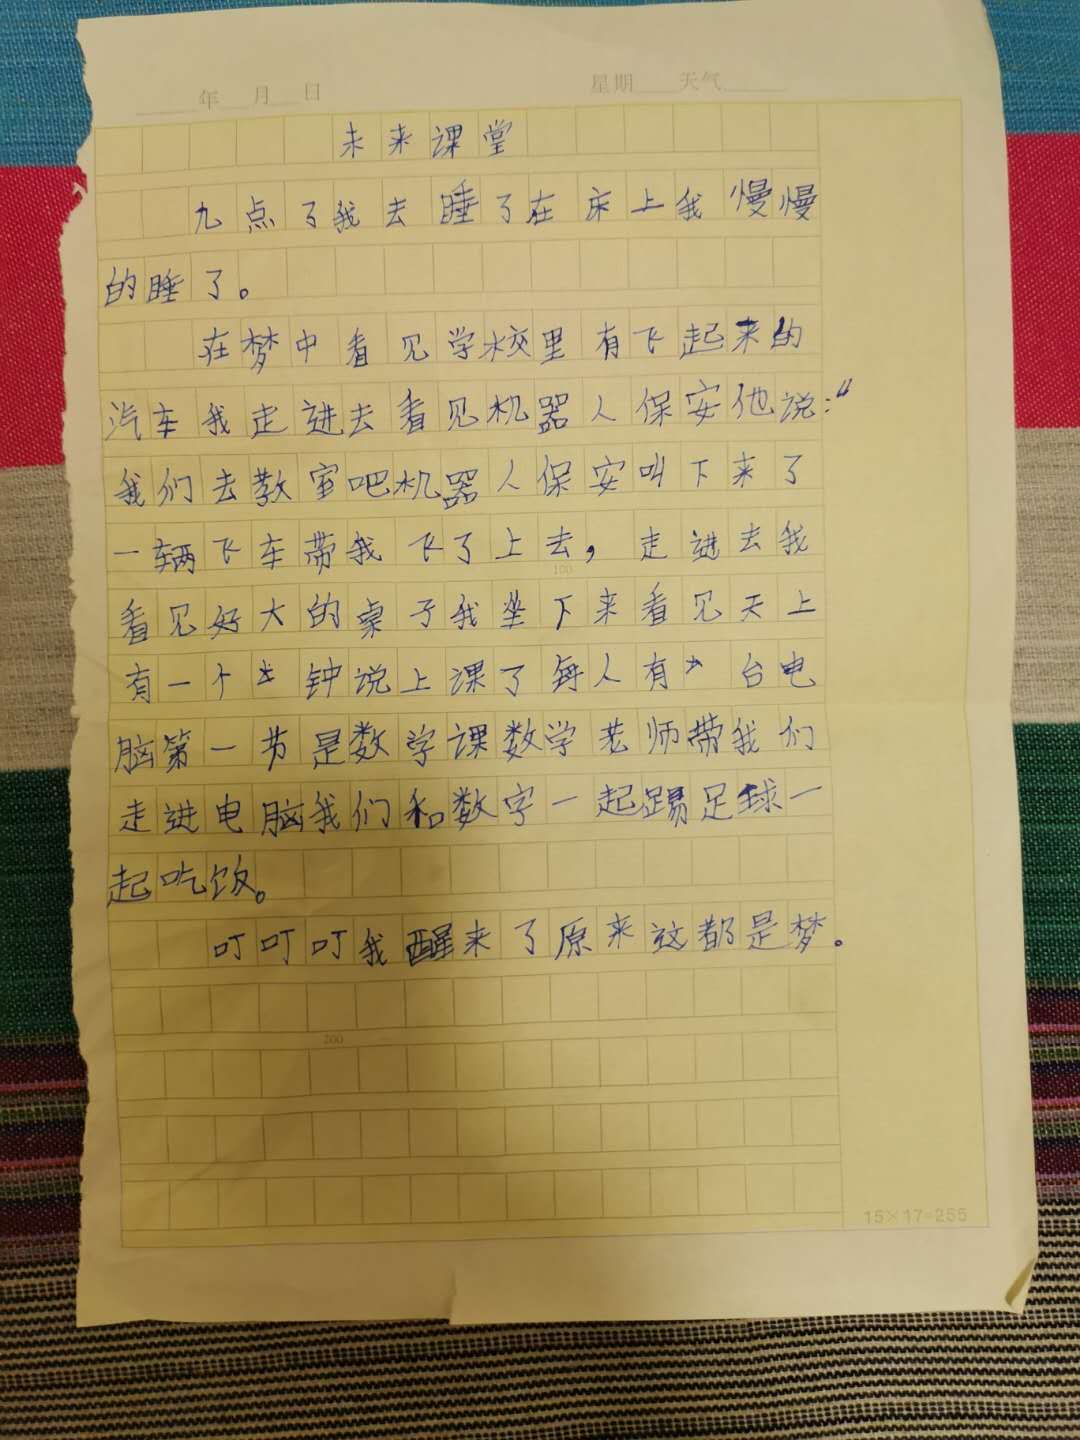 年 月 日 星期 天气
未来课堂
九点了我去睡了在床上我慢慢
的睡了。
在梦中看见学校里有飞起来的
汽车我走进去看见机器人保安他说:“
我们去教室吧机器人保安叫下来了
一辆飞车带我飞了上去,走进去我
100
看见好大的桌子我坐下来看见天上
有一个 钟说上课了每人有 台电
脑第一节是数学课数学老师带我们
走进电脑我们和数字一起踢足球一
起吃饭。
叮叮叮我醒来了原来这都是梦。
200
15×17=255